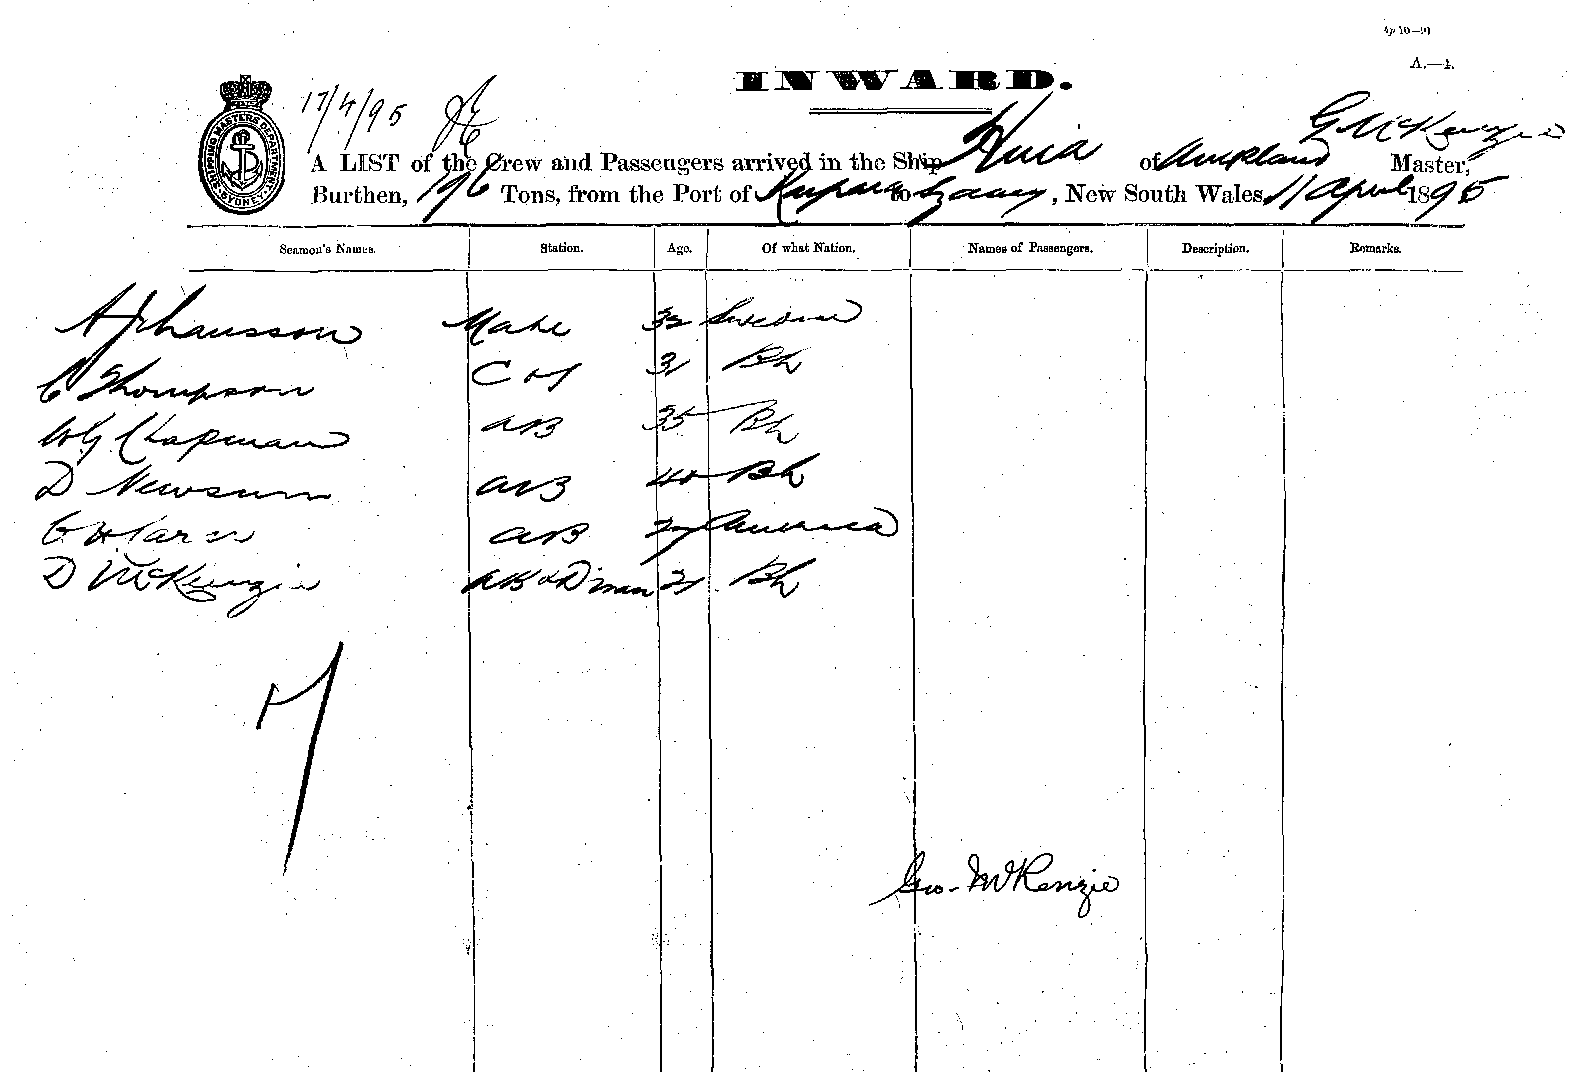 4p 10—91
A.—4.
INWARD.
SHIPPING MASTERS DEPARTMENT SYDNEY
17/4/95
G McKenzie
A LIST of the Crew and Passengers arrived in the Ship Huia of Auckland Master,
Burthen, 196 Tons, from the Port of Kaipara to Sydney, New South Wales, 11 April 1895
Seamen's Names. Station. Age. Of what Nation. Names of Passengers. Description. Remarks.
A Johansson Mate 32 Sweden
C Thompson 31 Bh
W G Chapman AB 35 Bh
D Newsum AB 40 Bh
AB 27 America
D McKenzie AB & D'man 21 Bh
7
Geo. McKenzie